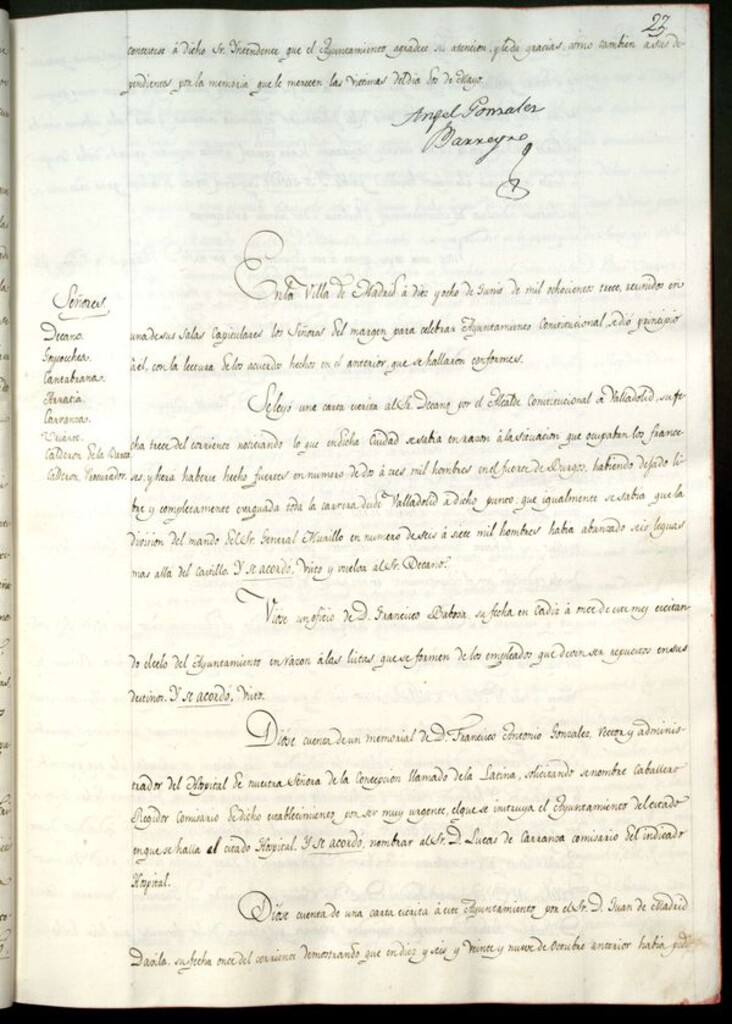 23
contexte á dicho Sr. Yntendente que el Ayuntamiento agradece su atencion, y le da gracias, como tambien a sus de-
pendientes por la memoria que le merecen las victimas del dia dos de Mayo.
Angel Gonzalez
Barreyro
Señores
Decano.
Goycochea.
Cantabrana.
Arratia.
Carranza.
Uriarte.
Calderon de la Barca
Calderon, Procurador.
En la Villa de Madrid á diez y ocho de Junio de mil ochocientos trece, reunidos en
una de sus Salas Capitulares los Señores del margen para celebrar Ayuntamiento Constitucional, se dió principio
á él, con la lectura de los acuerdos hechos en el anterior, que se hallaron conformes.
Se leyó una carta escrita al Sr. Decano por el Alcalde Constitucional de Valladolid, su fe-
cha trece del corriente noticiando lo que en dicha Ciudad se sabia en razon á la situacion que ocupaban los France-
ses, y herá haberse hecho fuertes en numero de dos á tres mil hombres en el fuerte de Burgos, habiendo dejado li-
bre y completamente evaquada toda la carrera desde Valladolid a dicho punto: que igualmente se sabía que la
division del mando del Sr. General Murillo en numero de seis á siete mil hombres habia abanzado seis leguas
mas alla del castillo. Y se acordó, Visto y vuelva al Sr. Decano.
Viose un oficio de D. Francisco Balosa su fecha en Cadiz á once de este mes excitan-
do el celo del Ayuntamiento en razon á las listas que se formen de los empleados que deven ser repuestos en sus
destinos. Y se acordó, Visto.
Dióse cuenta de un memorial de D. Francisco Antonio Gonzalez, rector y adminis-
trador del Hospital de nuestra Señora de la Concepcion llamado de la Latina, solicitando se nombre Caballero
Regidor Comisario de dicho establecimiento por ser muy urgente, el que se instruya el Ayuntamiento del estado
en que se halla el citado Hospital. Y se acordó, nombrar al Sr. D. Lucas de Carranza comisario del indicado
Hospital.
Dióse cuenta de una carta escrita á este Ayuntamiento por el Sr. D. Juan de Madrid
Davila, su fecha once del corriente demostrando que en diez y seis y veinte y nueve de Octubre anterior habia